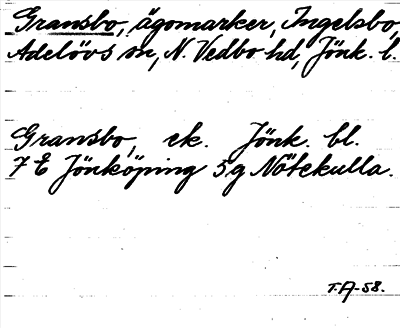 Gransbo, ägomarker, Ingelsbo,
Adelövs sn, N. Vedbo hd, Jönk. l.
Gransbo, ek. Jönk. bl.
7 E Jönköping 5 g Nötekulla.
T.A-58.